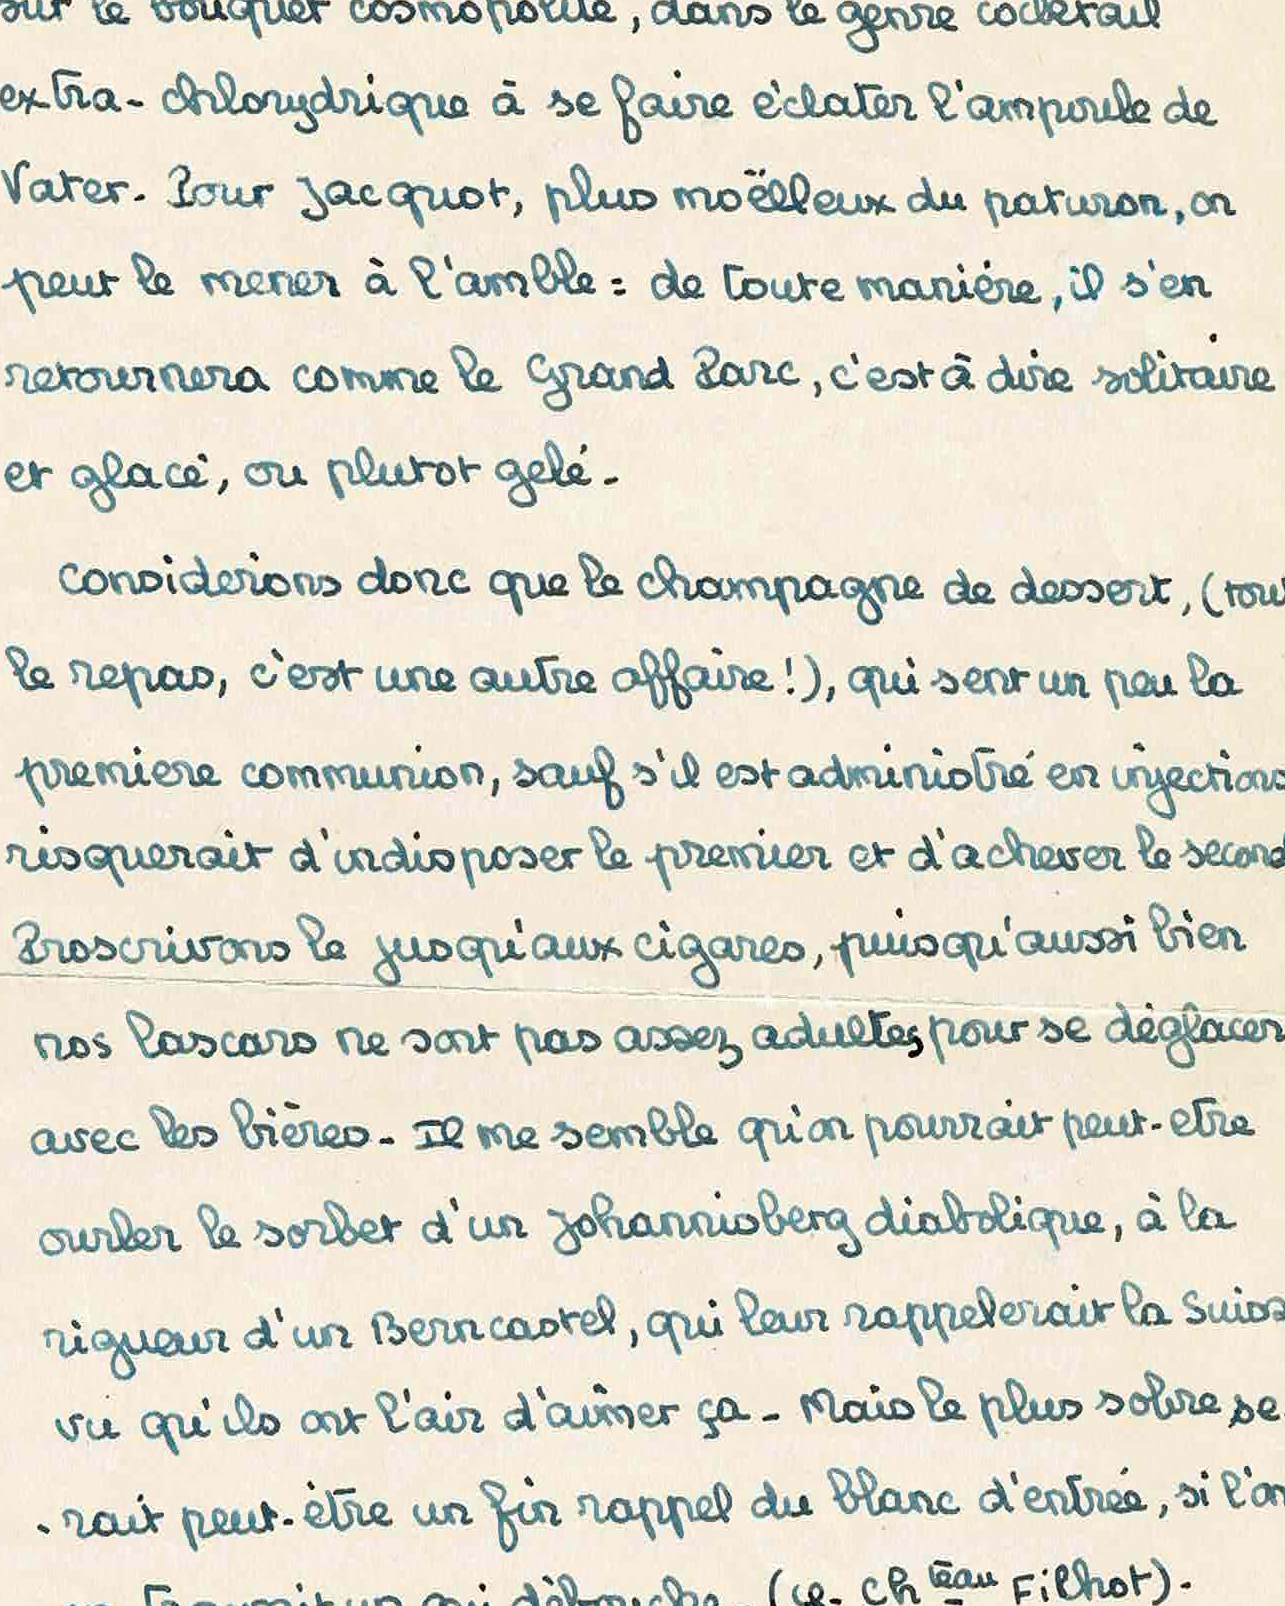 sur le bouquet cosmopolite, dans le genre cocktail
extra-chlorydrique à se faire éclater l'ampoule de
Vater. Pour Jacquot, plus moëlleux du paturon, on
peut le mener à l'amble : de toute maniére, il s'en
retournera comme le Grand Parc, c'est à dire solitaire
et glacé, ou plutot gelé.
Considerions donc que le champagne de dessert, (tout
le repas, c'est une autre affaire !), qui sent un peu la
premiere communion, sauf s'il est administré en injections
risquerait d'indisposer le premier et d'achever le second
Proscrivons le jusqu'aux cigares, puisqu'aussi bien
nos lascars ne sont pas assez adultes pour se déglacer
avec les bières. Il me semble qu'on pourrait peut-etre
ourler le sorbet d'un Johannisberg diabolique, à la
rigueur d'un Berncastel, qui leur rappelerait la Suiss
vu qu'ils ont l'air d'aimer ça. Mais le plus sobre se
rait peut-être un fin rappel du blanc d'entrée, si l'on
en fournit un qui débouche (cf. Ch téau Filhot).